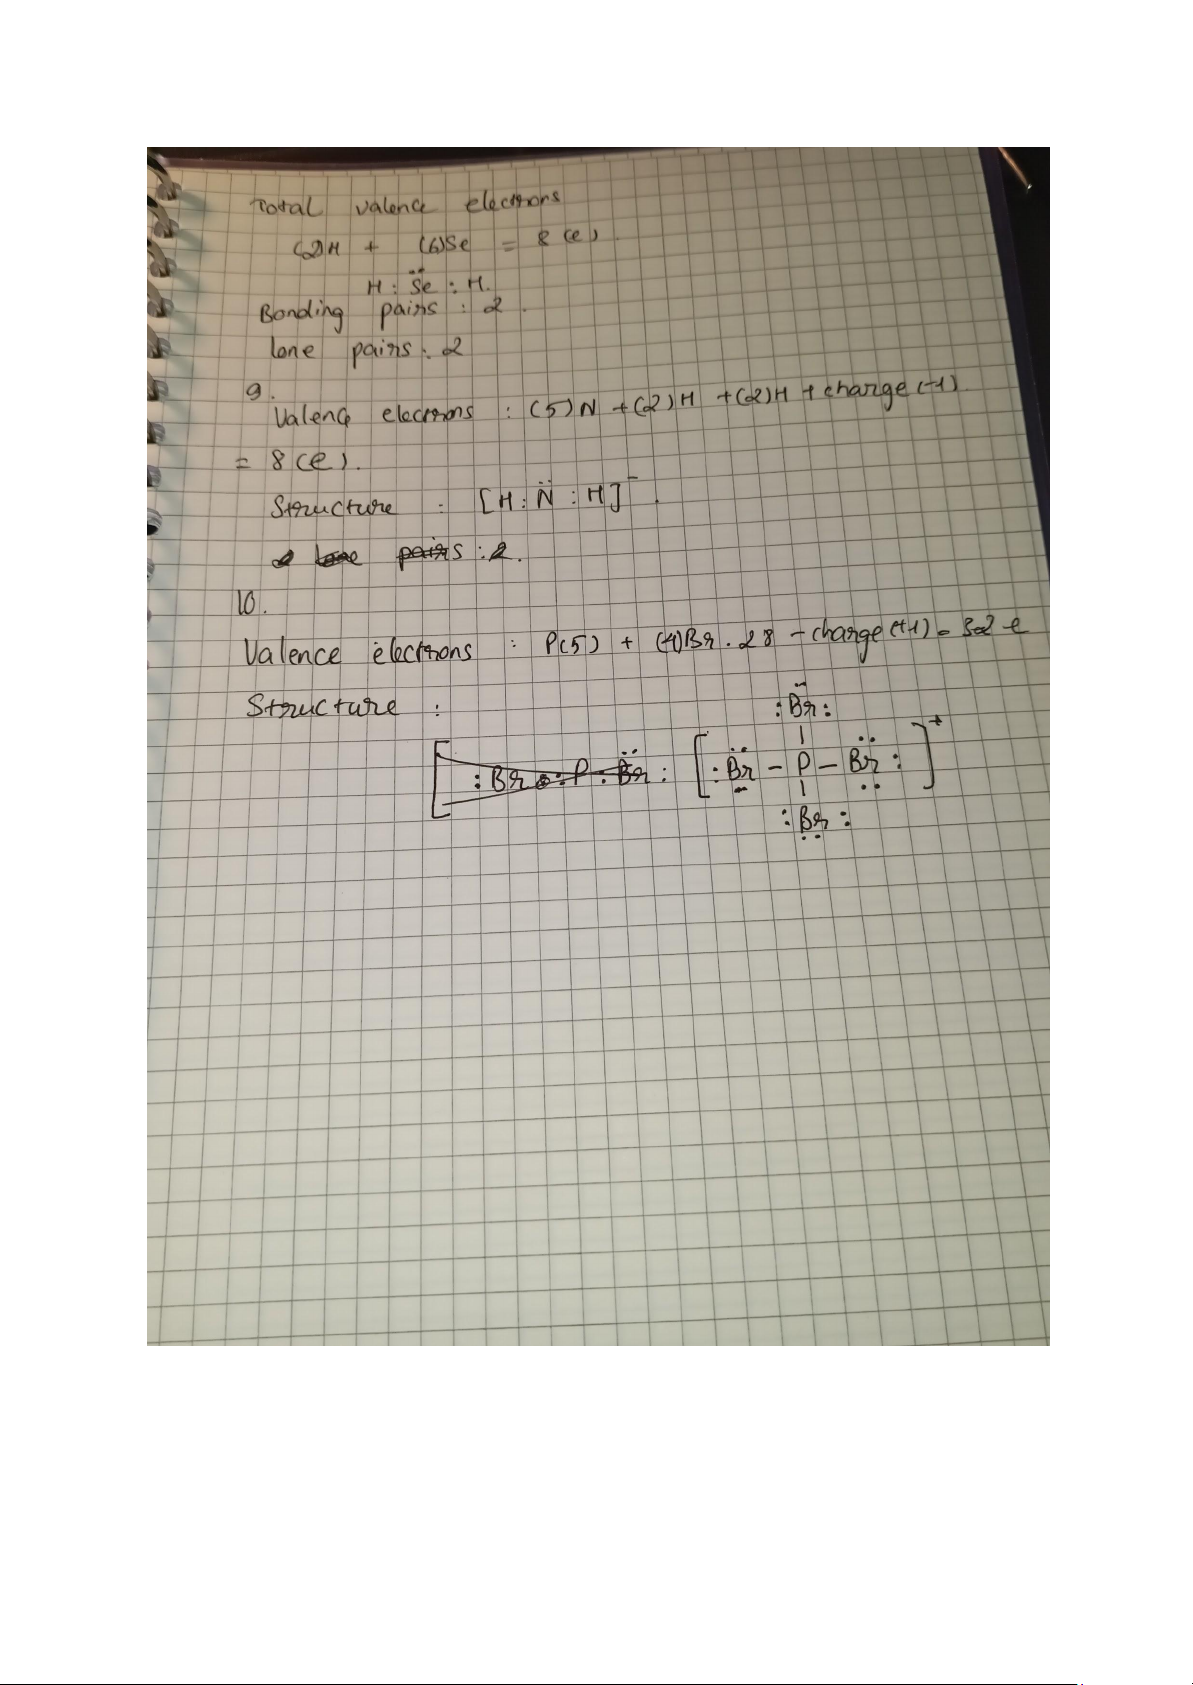 Total valence electrons
(2)H + (6)Se = 8 (e).
H : S̈e : H.
Bonding pairs : 2.
lone pairs : 2
9.
Valence electrons : (5)N + (2)H + (2)H + charge (-1)
= 8 (e).
Structure : [H : N̈ : H]⁻.
lone pairs : 2.
10.
Valence electrons : P(5) + (4)Br . 28 - charge (+1) = 32 e
Structure :
: Br :
[ : Br : P : Br : [ : Br - P - Br : ]⁺
: Br :